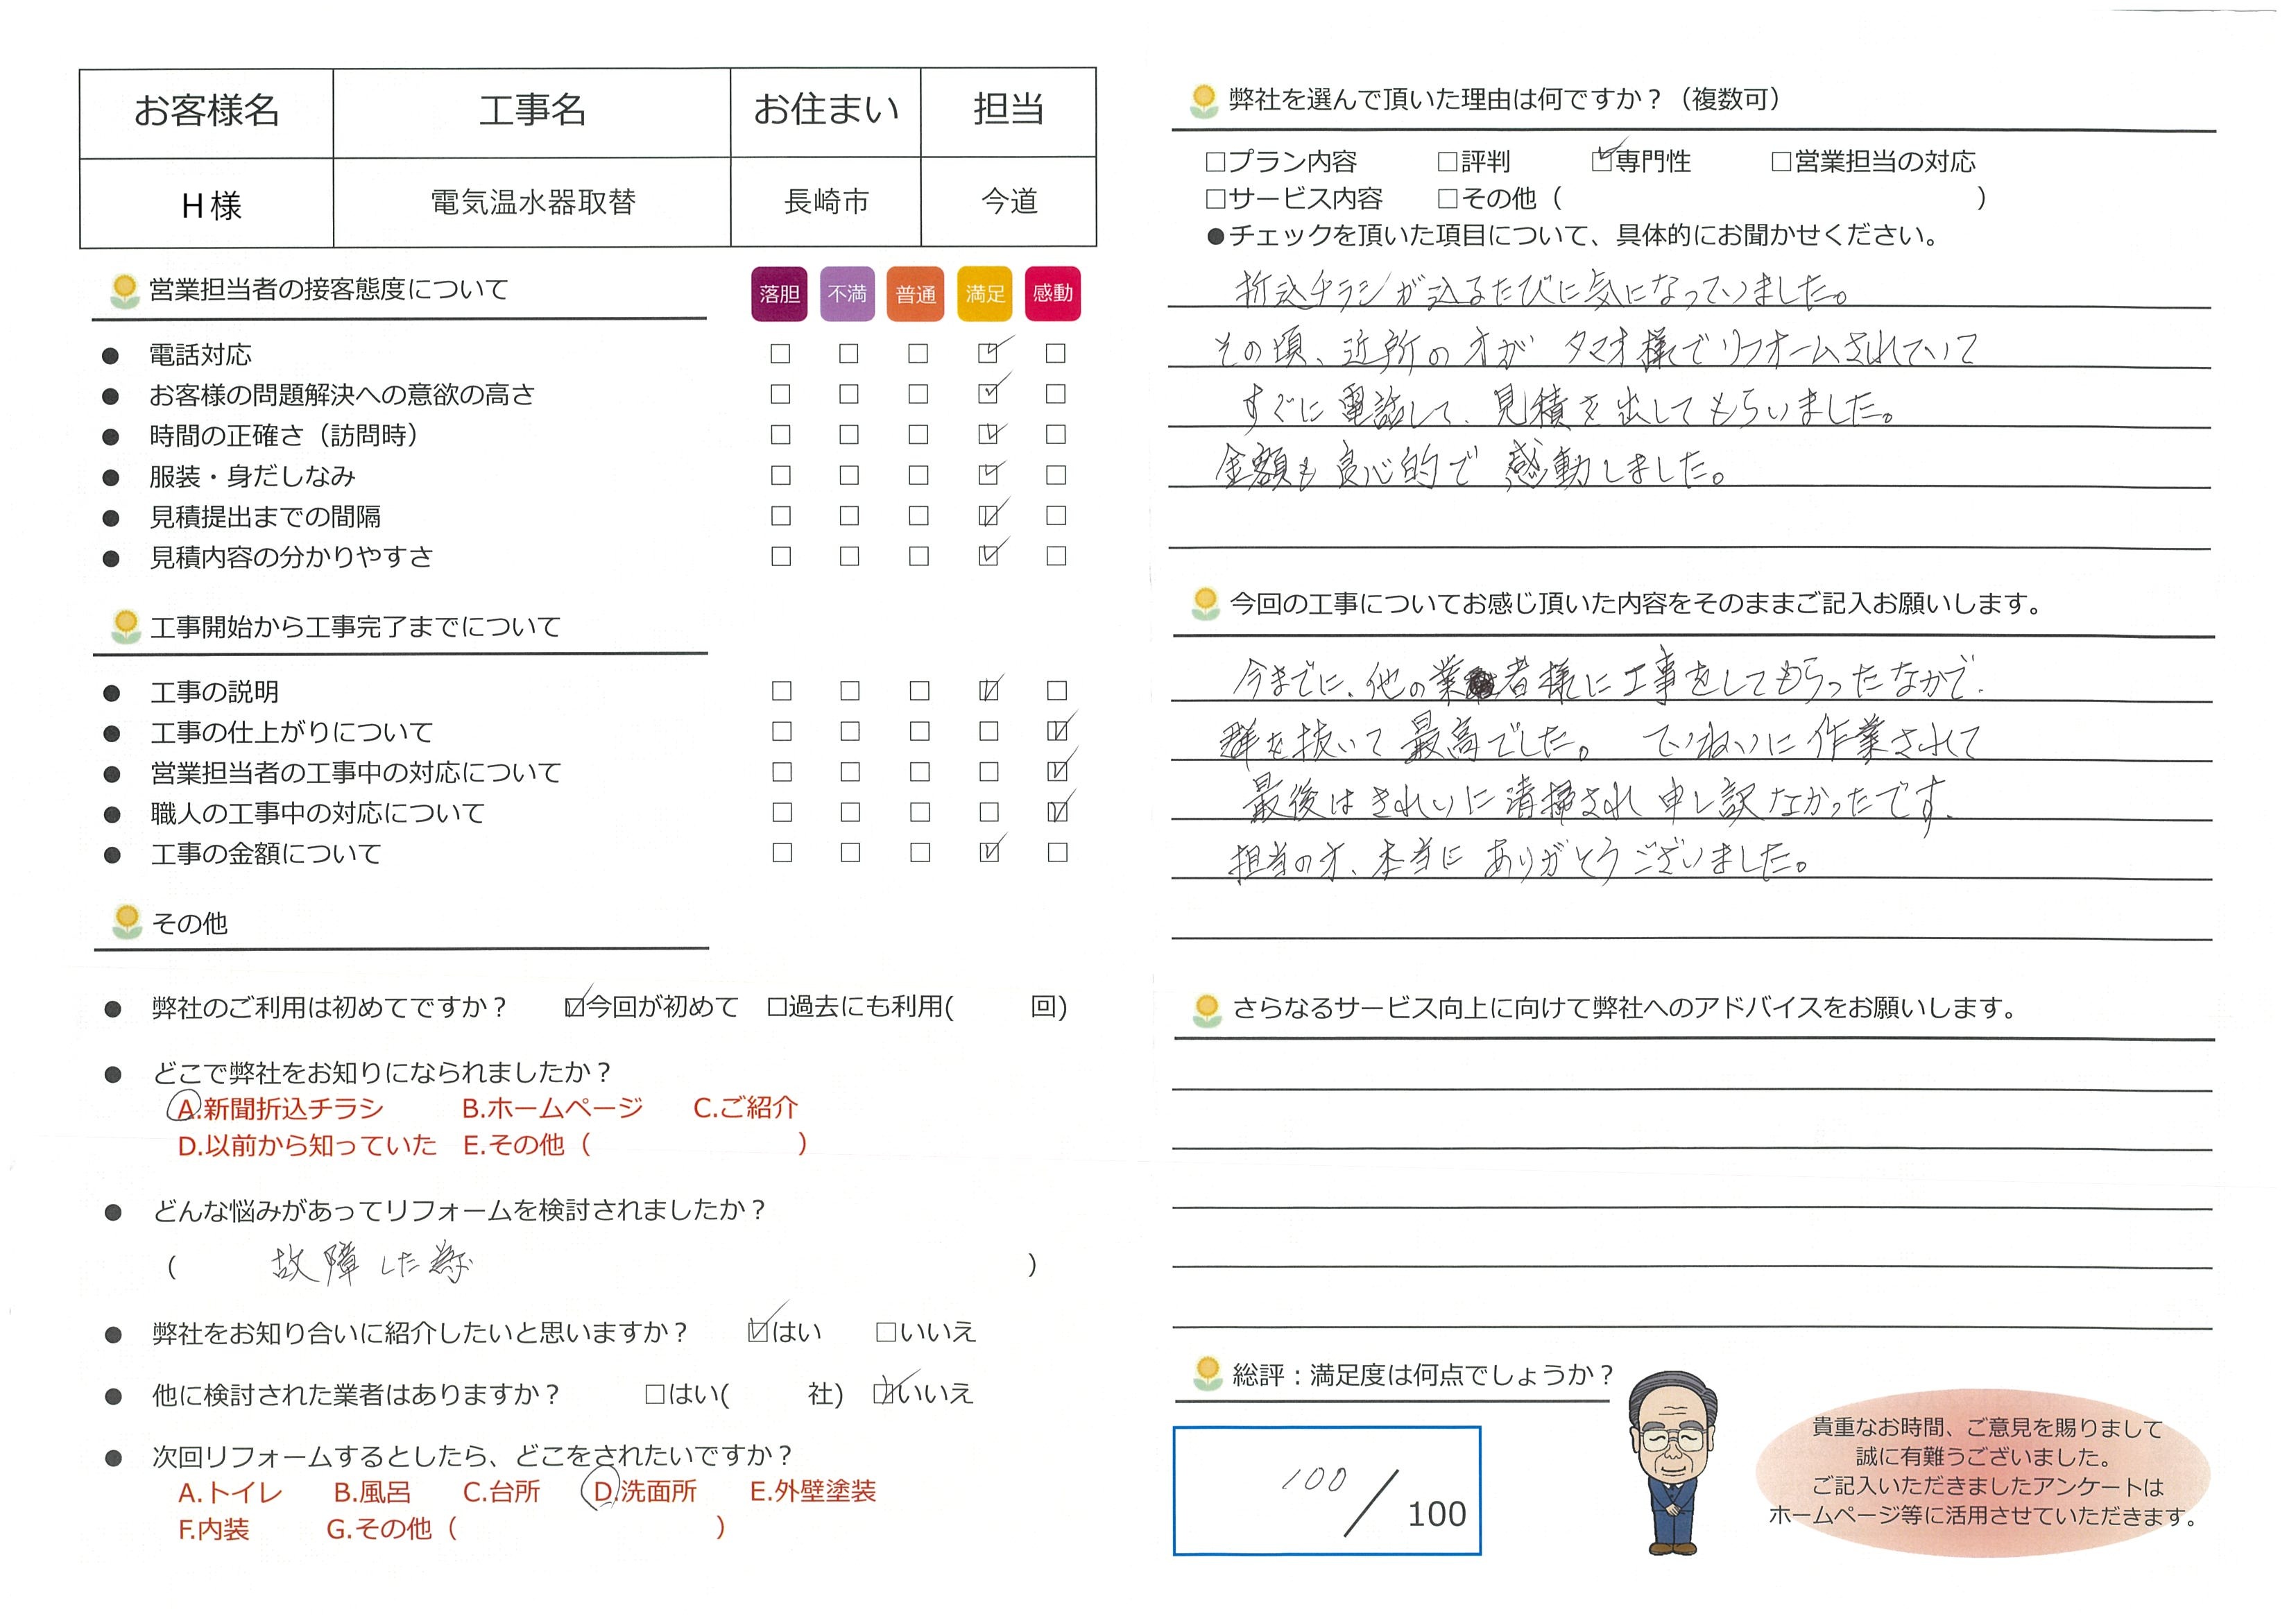 お客様名 工事名 お住まい 担当
H様 電気温水器取替 長崎市 今道
営業担当者の接客態度について 落胆 不満 普通 満足 感動
● 電話対応 □ □ □ ☑ □
● お客様の問題解決への意欲の高さ □ □ □ ☑ □
● 時間の正確さ（訪問時） □ □ □ ☑ □
● 服装・身だしなみ □ □ □ ☑ □
● 見積提出までの間隔 □ □ □ ☑ □
● 見積内容の分かりやすさ □ □ □ ☑ □
工事開始から工事完了までについて
● 工事の説明 □ □ □ ☑ □
● 工事の仕上がりについて □ □ □ □ ☑
● 営業担当者の工事中の対応について □ □ □ □ ☑
● 職人の工事中の対応について □ □ □ □ ☑
● 工事の金額について □ □ □ ☑ □
その他
● 弊社のご利用は初めてですか？ ☑今回が初めて □過去にも利用( 回)
● どこで弊社をお知りになられましたか？
A.新聞折込チラシ B.ホームページ C.ご紹介
D.以前から知っていた E.その他（ ）
● どんな悩みがあってリフォームを検討されましたか？
( 故障した為 )
● 弊社をお知り合いに紹介したいと思いますか？ ☑はい □いいえ
● 他に検討された業者はありますか？ □はい( 社) ☑いいえ
● 次回リフォームするとしたら、どこをされたいですか？
A.トイレ B.風呂 C.台所 D.洗面所 E.外壁塗装
F.内装 G.その他（ ）
弊社を選んで頂いた理由は何ですか？（複数可）
□プラン内容 □評判 ☑専門性 □営業担当の対応
□サービス内容 □その他（ ）
●チェックを頂いた項目について、具体的にお聞かせください。
折込チラシが込るたびに気になっていました。
その頃、近所の方が タマオ様でリフォームされていて
すぐに電話して、見積を出してもらいました。
金額も良心的で 感動しました。
今回の工事についてお感じ頂いた内容をそのままご記入お願いします。
今までに、他の業者様に工事をしてもらったなかで、
群を抜いて最高でした。 ていねいに作業されて
最後はきれいに清掃され申し訳なかったです。
担当の方、本当に ありがとうございました。
さらなるサービス向上に向けて弊社へのアドバイスをお願いします。
総評：満足度は何点でしょうか？
100／100
貴重なお時間、ご意見を賜りまして
誠に有難うございました。
ご記入いただきましたアンケートは
ホームページ等に活用させていただきます。